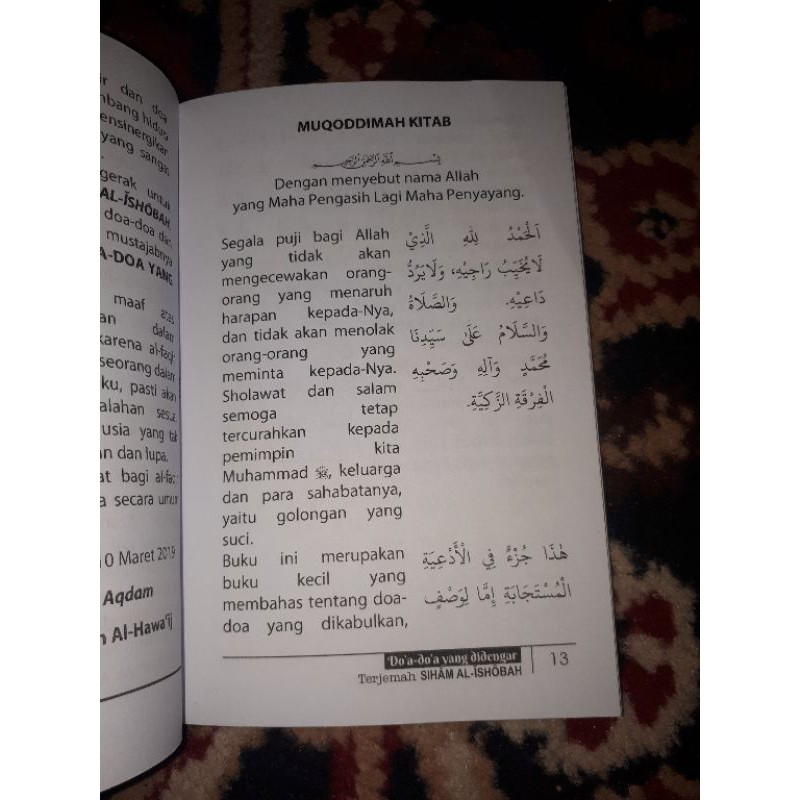 r dan doa
mbang hidup
ensinergikan
yang sangat
gerak untuk
AL-ÎSHÔBAH
doa-doa dan
mustajabnya
A-DOA YANG
maaf atas
an dalam
karena al-faqi-
seorang dalam
ku, pasti akan
alahan sesua
usia yang tak
n dan lupa.
at bagi al-faq-
a secara umum
10 Maret 2019
Aqdam
n Al-Hawa'ij
MUQODDIMAH KITAB
بِسْــمِ اللهِ الرَّحْمٰنِ الرَّحِيْمِ
Dengan menyebut nama Allah
yang Maha Pengasih Lagi Maha Penyayang.
Segala puji bagi Allah
yang tidak akan
mengecewakan orang-
orang yang menaruh
harapan kepada-Nya,
dan tidak akan menolak
orang-orang yang
meminta kepada-Nya.
Sholawat dan salam
semoga tetap
tercurahkan kepada
pemimpin kita
Muhammad ﷺ, keluarga
dan para sahabatanya,
yaitu golongan yang
suci.
اَلْحَمْدُ لِلّٰهِ الَّذِيْ
لَا يُخَيِّبُ رَاجِيْهِ، وَلَا يَرُدُّ
دَاعِيْهِ. وَالصَّلَاةُ
وَالسَّلَامُ عَلَى سَيِّدِنَا
مُحَمَّدٍ وَآلِهِ وَصَحْبِهِ
الْفِرْقَةِ الزَّكِيَّةِ.
Buku ini merupakan
buku kecil yang
membahas tentang doa-
doa yang dikabulkan,
هٰذَا جُزْءٌ فِي الْأَدْعِيَةِ
الْمُسْتَجَابَةِ إِمَّا لِوَصْفٍ
Do'a-do'a yang didengar
Terjemah SIHÂM AL-ÎSHÔBAH
13